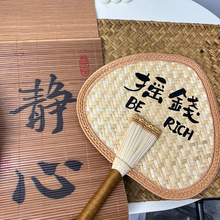 静
心
摇錢
BE
RICH